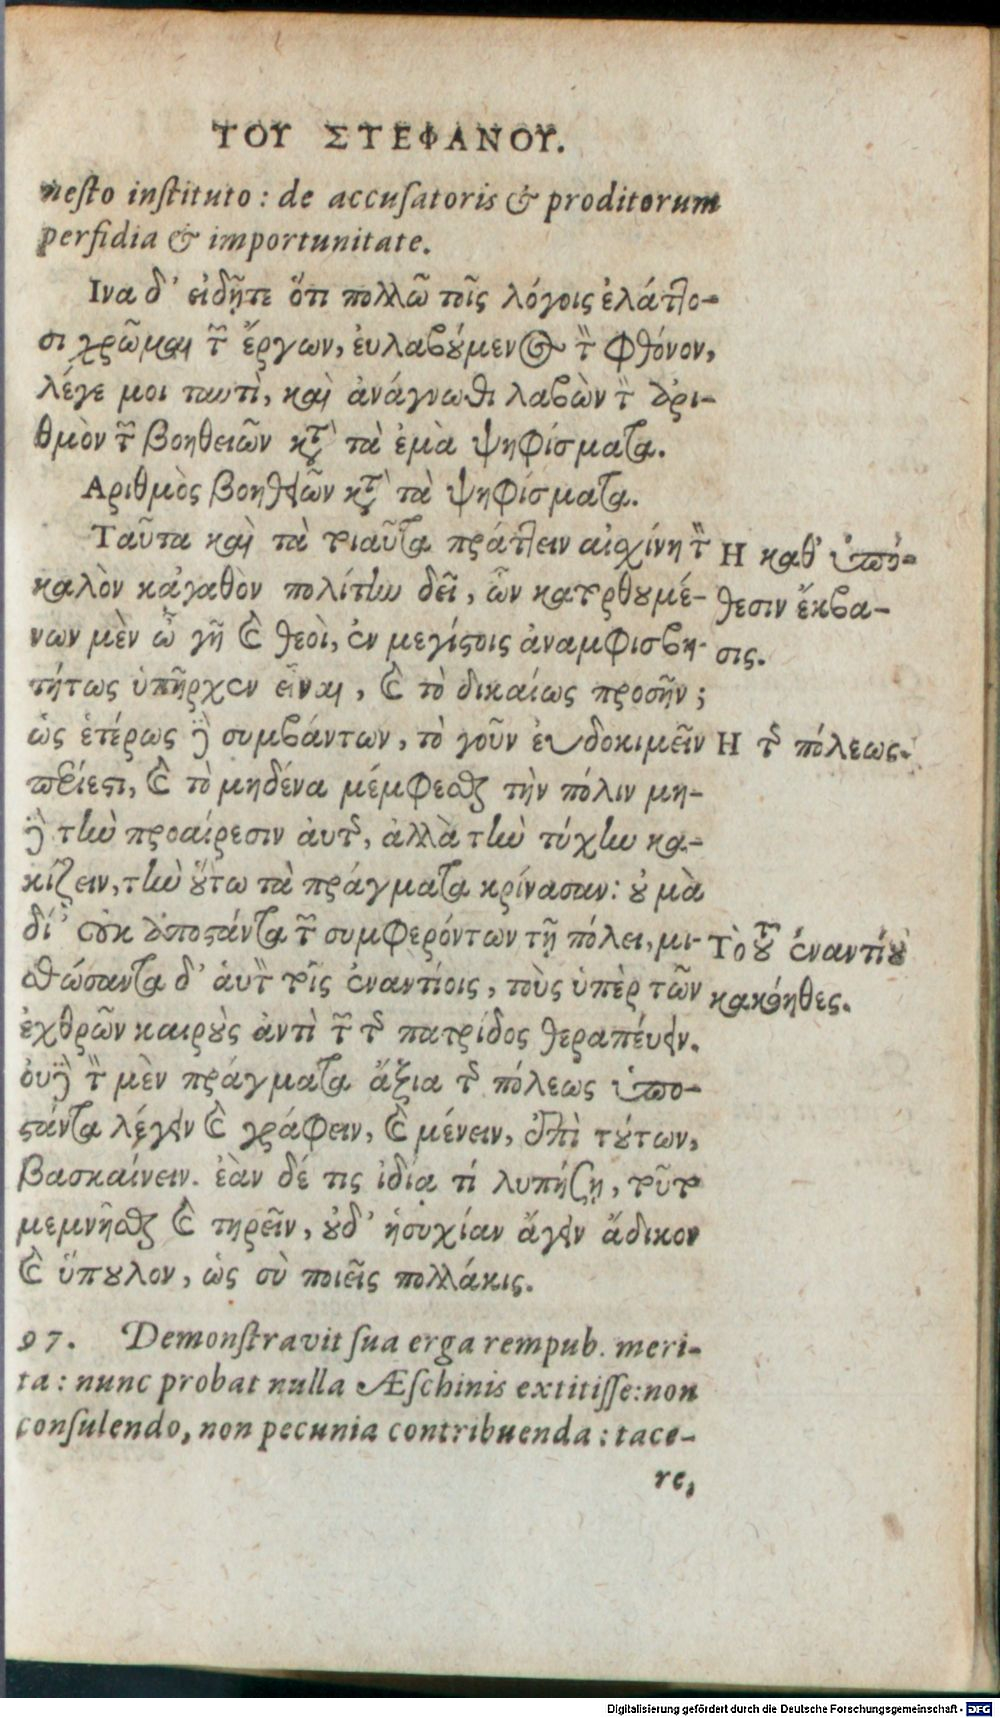 ΤΟΥ ΣΤΕΦΑΝΟΥ.
neſto inſtituto : de accuſatoris & proditorum
perfidia & importunitate.
Ινα δ' εἰδῆτε ὅτι πολλῶ τοῖς λόγοις ἐλάττο-
σι χρῶμαι τῶν ἔργων, ἐυλαβούμενος τὸν φθόνον,
λέγε μοι ταυτὶ, καὶ ἀνάγνωθι λαβὼν τὸν ἀρι-
θμὸν τῶν βοηθειῶν κατὰ τὰ ἐμὰ ψηφίσματα.
Αριθμὸς βοηθειῶν κατὰ τὰ ψηφίσματα.
Ταῦτα καὶ τὰ τοιαῦτα πράττειν αἰσχίνη τὸν
καλὸν κἀγαθὸν πολίτην δεῖ, ὧν κατορθουμέ-
νων μὲν ὦ γῆ καὶ θεοὶ, ἐν μεγίστοις ἀναμφισβη-
τήτως ὑπῆρχεν εἶναι, καὶ τὸ δικαίως προσῆν ;
ὡς ἑτέρως δὲ συμβάντων, τὸ γοῦν ἐυδοκιμεῖν
περίεστι, καὶ τὸ μηδένα μέμφεσθαι τὴν πόλιν μη-
δὲ τὴν προαίρεσιν ἀυτῆς, ἀλλὰ τὴν τύχην κα-
κίζειν, τὴν οὕτω τὰ πράγματα κρίνασαν: οὐ μὰ
δί' οὐκ ἀποστάντα τῶν συμφερόντων τῇ πόλει, μι-
σθώσαντα δ' ἁυτὸν τοῖς ἐναντίοις, τοὺς ὑπὲρ τῶν
ἐχθρῶν καιροὺς ἀντὶ τῶν τῆς πατρίδος θεραπέυειν.
ὀυδὲ τὸν μὲν πράγματα ἄξια τῆς πόλεως ὑπο-
στάντα λέγειν καὶ γράφειν, καὶ μένειν, ἐπὶ τούτων,
βασκαίνειν. ἐὰν δέ τις ἰδίᾳ τί λυπήσῃ, τοῦτο
μεμνῆσθαι καὶ τηρεῖν, οὐδ' ἡσυχίαν ἄγειν ἄδικον
καὶ ὕπουλον, ὡς σὺ ποιεῖς πολλάκις.
Η καθ' ὑπό-
θεσιν ἔκβα-
σις.
Η τῆς πόλεως.
Τὸ τοῦ ἐναντίου
κακόηθες.
97. Demonſtravit ſua erga rempub. meri-
ta : nunc probat nulla Æſchinis extitiſſe: non
conſulendo, non pecunia contribuenda : tace-
re,
Digitalisierung gefördert durch die Deutsche Forschungsgemeinschaft - DFG